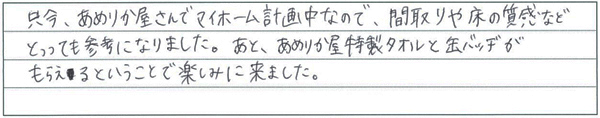 只今、あめりか屋さんでマイホーム計画中なので、間取りや床の質感など
とっっても参考になりました。あと、あめりか屋特製タオルと缶バッヂが
もらえるということで楽しみに来ました。